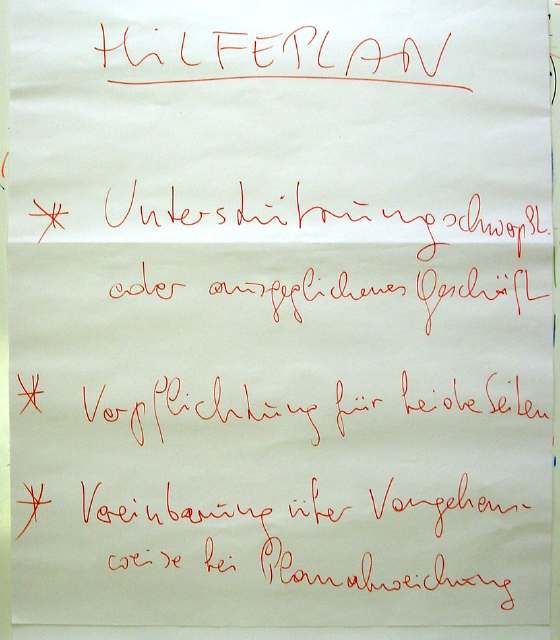 HiLFEPLAN
* Unterstützung
oder ausgeglichenes Geschäft
* Verpflichtung für beide Seiten
* Vereinbarung über Vorgehens-
weise bei Planabweichung